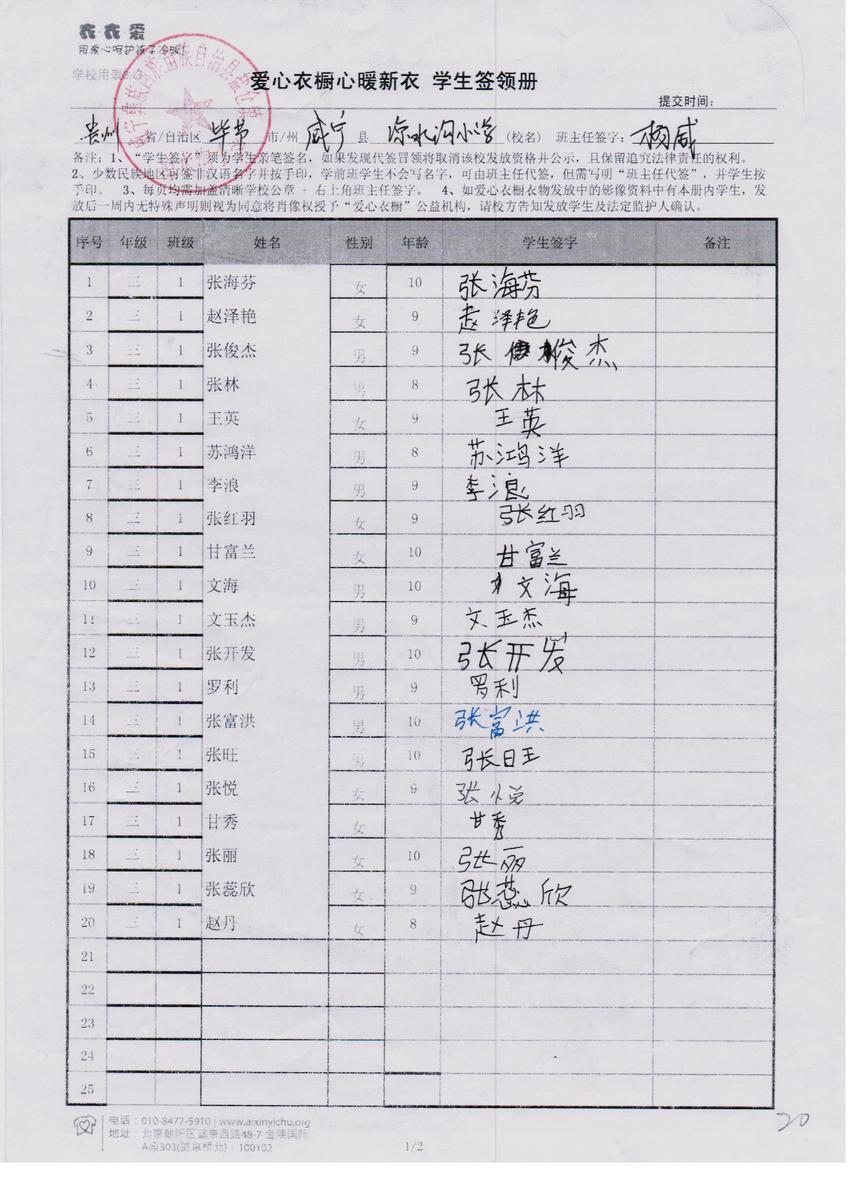 衣·衣 爱
用爱心呵护孩子冷暖!
学校用表
爱心衣橱心暖新衣 学生签领册
提交时间:
贵州 省/自治区 毕节 市/州 威宁 县 凉水沟小学 (校名) 班主任签字: 杨威
备注: 1、“学生签字”须为学生亲笔签名, 如果发现代签冒领将取消该校发放资格并公示, 且保留追究法律责任的权利。
2、少数民族地区可签非汉语名字并按手印, 学前班学生不会写名字, 可由班主任代签, 但需写明“班主任代签”, 并学生按
手印。 3、每页均需加盖清晰学校公章 + 右上角班主任签字。 4、如爱心衣橱衣物发放中的影像资料中有本册内学生, 发
放后一周内无特殊声明则视为同意将肖像权授予“爱心衣橱”公益机构, 请校方告知发放学生及法定监护人确认。
序号 年级 班级 姓名 性别 年龄 学生签字 备注
1 三 1 张海芬 女 10 张海芬
2 三 1 赵泽艳 女 9 赵泽艳
3 三 1 张俊杰 男 9 张俊杰
4 三 1 张林 男 8 张林
5 三 1 王英 女 9 王英
6 三 1 苏鸿洋 男 8 苏鸿洋
7 三 1 李浪 男 9 李浪
8 三 1 张红羽 女 9 张红羽
9 三 1 甘富兰 女 10 甘富兰
10 三 1 文海 男 10 文海
11 三 1 文玉杰 男 9 文玉杰
12 三 1 张开发 男 10 张开发
13 三 1 罗利 男 9 罗利
14 三 1 张富洪 男 10 张富洪
15 三 1 张旺 男 10 张旺
16 三 1 张悦 女 9 张悦
17 三 1 甘秀 女 甘秀
18 三 1 张丽 女 10 张丽
19 三 1 张蕊欣 女 9 张蕊欣
20 三 1 赵丹 女 8 赵丹
21
22
23
24
25
电话: 010-8477-5910 | www.aixinyichu.org
地址: 北京朝阳区望京西路48-7 金隅国际
A座303(望京桥北) | 100102
1/2
20